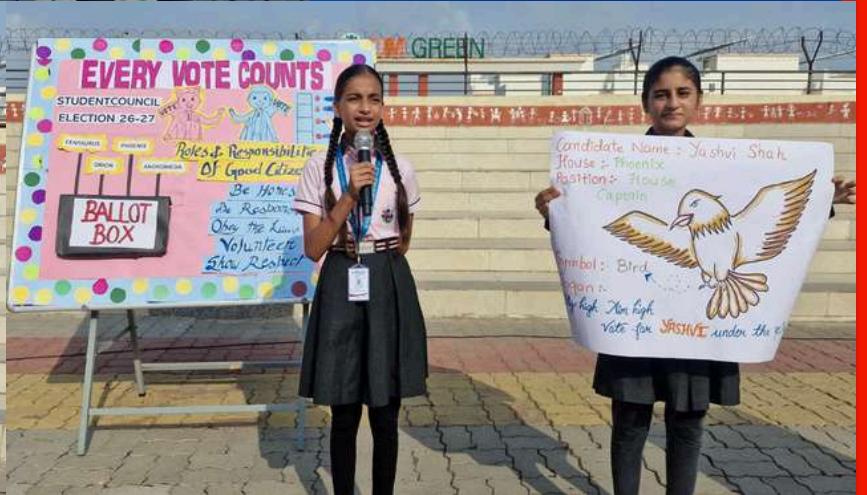 GREEN
EVERY VOTE COUNTS
STUDENTCOUNCIL
ELECTION 26-27
VOTE
VOTE
CENTAURUS
PHOENIX
ORION
ANDROMEDA
BALLOT
BOX
Roles & Responsibilitie
Of Good Citize
Be Hones
Be
Obey the
Volunteer
Show Respect
Candidate Name : Yashvi Shah
House :- Phoenix
Position :- House
Captain
Symbol : Bird
high Aim high
Vote for YASHVI under the